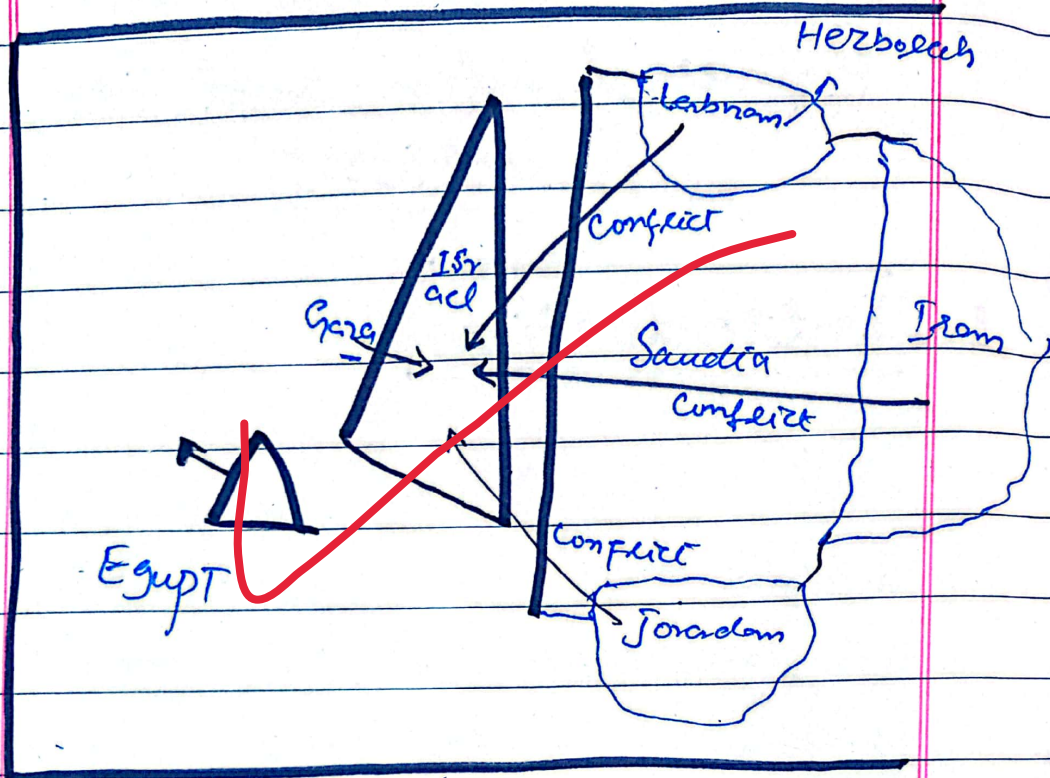 Herbolah
Lebnam
Conflict
Isr
ael
Gaza
Saudia
Iram
Conflict
Conflict
Egupt
Joradam